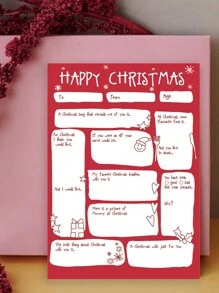 HAPPY CHRISTMAS
To
From
Age
A Christmas song that reminds me of you is..
At Christmas
your
favourite food is..
For Christmas
I think you
would like..
If you were an elf your
name would be..
And you like
to drink..
And I would like..
My favourite Christmas tradition
with you is
You have been..
good
bad
this year because..
Here is a picture of
Mummy at Christmas
Why?
The best thing about Christmas
with you is..
A Christmas wish just for you